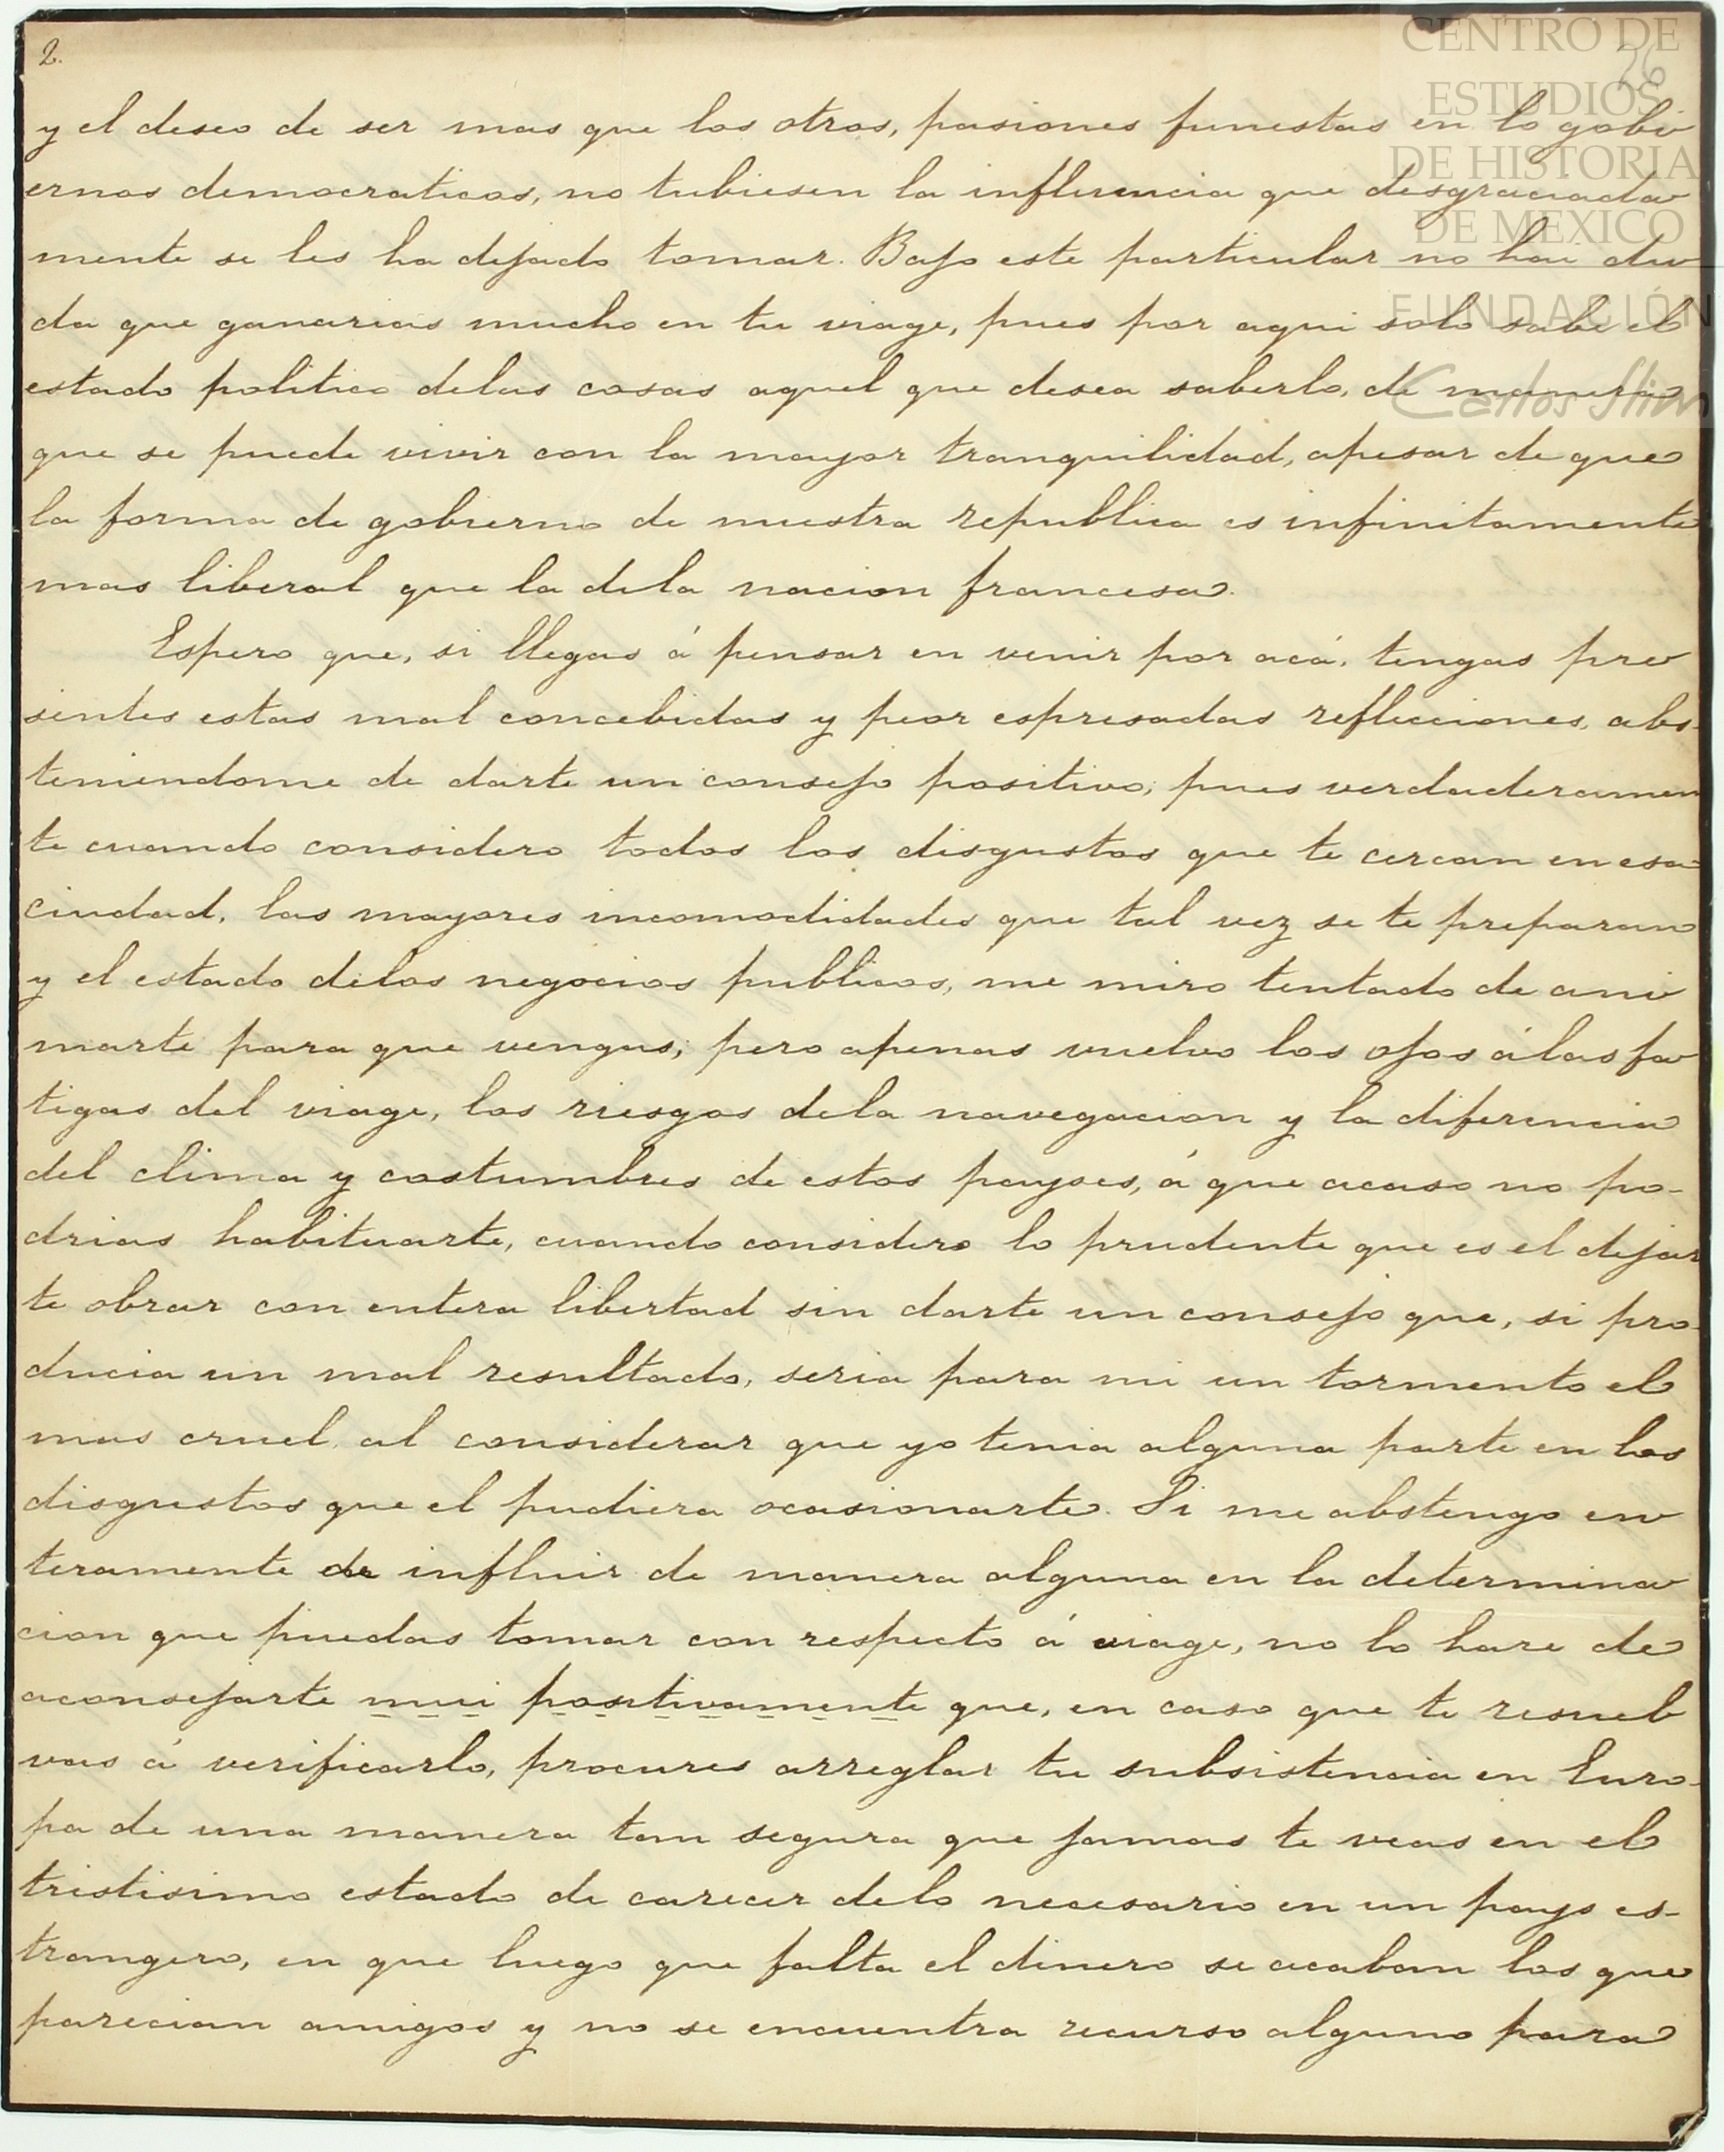 2.
26
CENTRO DE
ESTUDIOS
DE HISTORIA
DE MEXICO
FUNDACIÓN
Carlos Slim
y el deseo de ser mas que los otros, pasiones funestas en lo gobi
ernos democraticos, no tubiesen la influencia que desgraciada
mente se les ha dejado tomar. Bajo este particular no hai du
da que ganarias mucho en tu viage, pues por aqui solo sabe el
estado politico delas cosas aquel que desea saberlo, de manera
que se puede vivir con la mayor tranquilidad, apesar de que
la forma de gobierno de nuestra republica es infinitamente
mas liberal que la dela nacion francesa.
Espero que, si llegas á pensar en venir por acá, tengas pre
sentes estas mal concebidas y peor espresadas reflecciones, abs-
teniendome de darte un consejo positivo; pues verdaderamen
te cuando considero todos los disgustos que te cercan en esa
ciudad, las mayores incomodidades que tal vez se te preparan
y el estado delos negocios publicos, me miro tentado de ani
marte para que vengas; pero apenas vuelvo los ojos álas fa
tigas del viage, los riesgos dela navegacion y la diferencia
del clima y costumbres de estos payses, á que acaso no po-
drias habituarte, cuando considero lo prudente que es el dejar
te obrar con entera libertad sin darte un consejo que, si pro-
ducia un mal resultado, seria para mi un tormento el
mas cruel, al considerar que yo tenia alguna parte en los
disgustos que el pudiera ocasionarte. Si me abstengo en
teramente de influir de manera alguna en la determina
cion que puedas tomar con respecto á viage, no lo hare de
aconsejarte mui positivamente que, en caso que te resuel
vas á verificarlo, procures arreglar tu subsistencia en Euro-
pa de una manera tan segura que jamas te veas en el
tristisimo estado de carecer delo necesario en un pays es-
trangero, en que luego que falta el dinero se acaban los que
parecian amigos y no se encuentra recurso alguno para